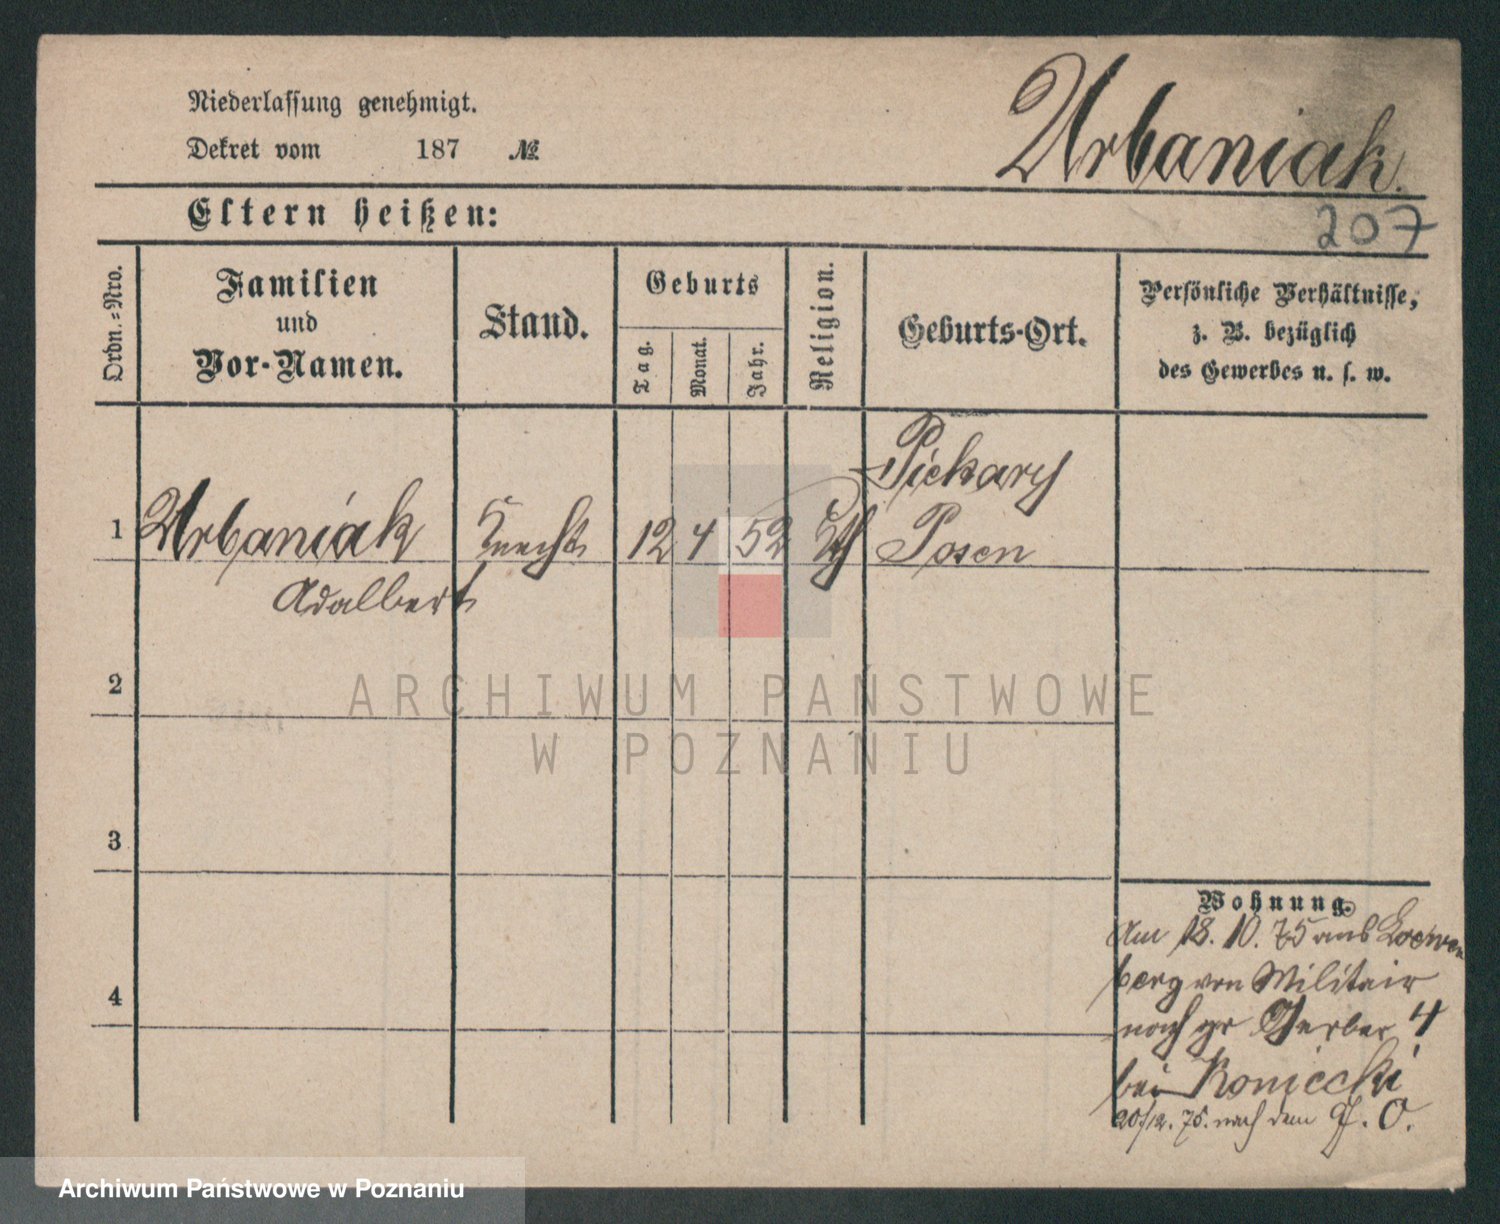 Niederlassung genehmigt.
Dekret vom 187 №
Urbaniak.
207
Eltern heißen:
Ordn.=Nro.
Familien
und
Vor-Namen.
Stand.
Geburts
Tag.
Monat.
Jahr.
Religion.
Geburts-Ort.
Persönliche Verhältnisse,
z. B. bezüglich
des Gewerbes u. s. w.
Piekary
1 Urbaniak Knecht 12 4 52 Kth Posen
Adalbert
2
ARCHIWUM PAŃSTWOWE
W POZNANIU
3
Wohnung.
Am 18. 10. 75 aus Loewen
berg von Militair
4
nach gr Gerber 4
bei Koniecki
20/12. 75. nach dem J. O.
Archiwum Państwowe w Poznaniu